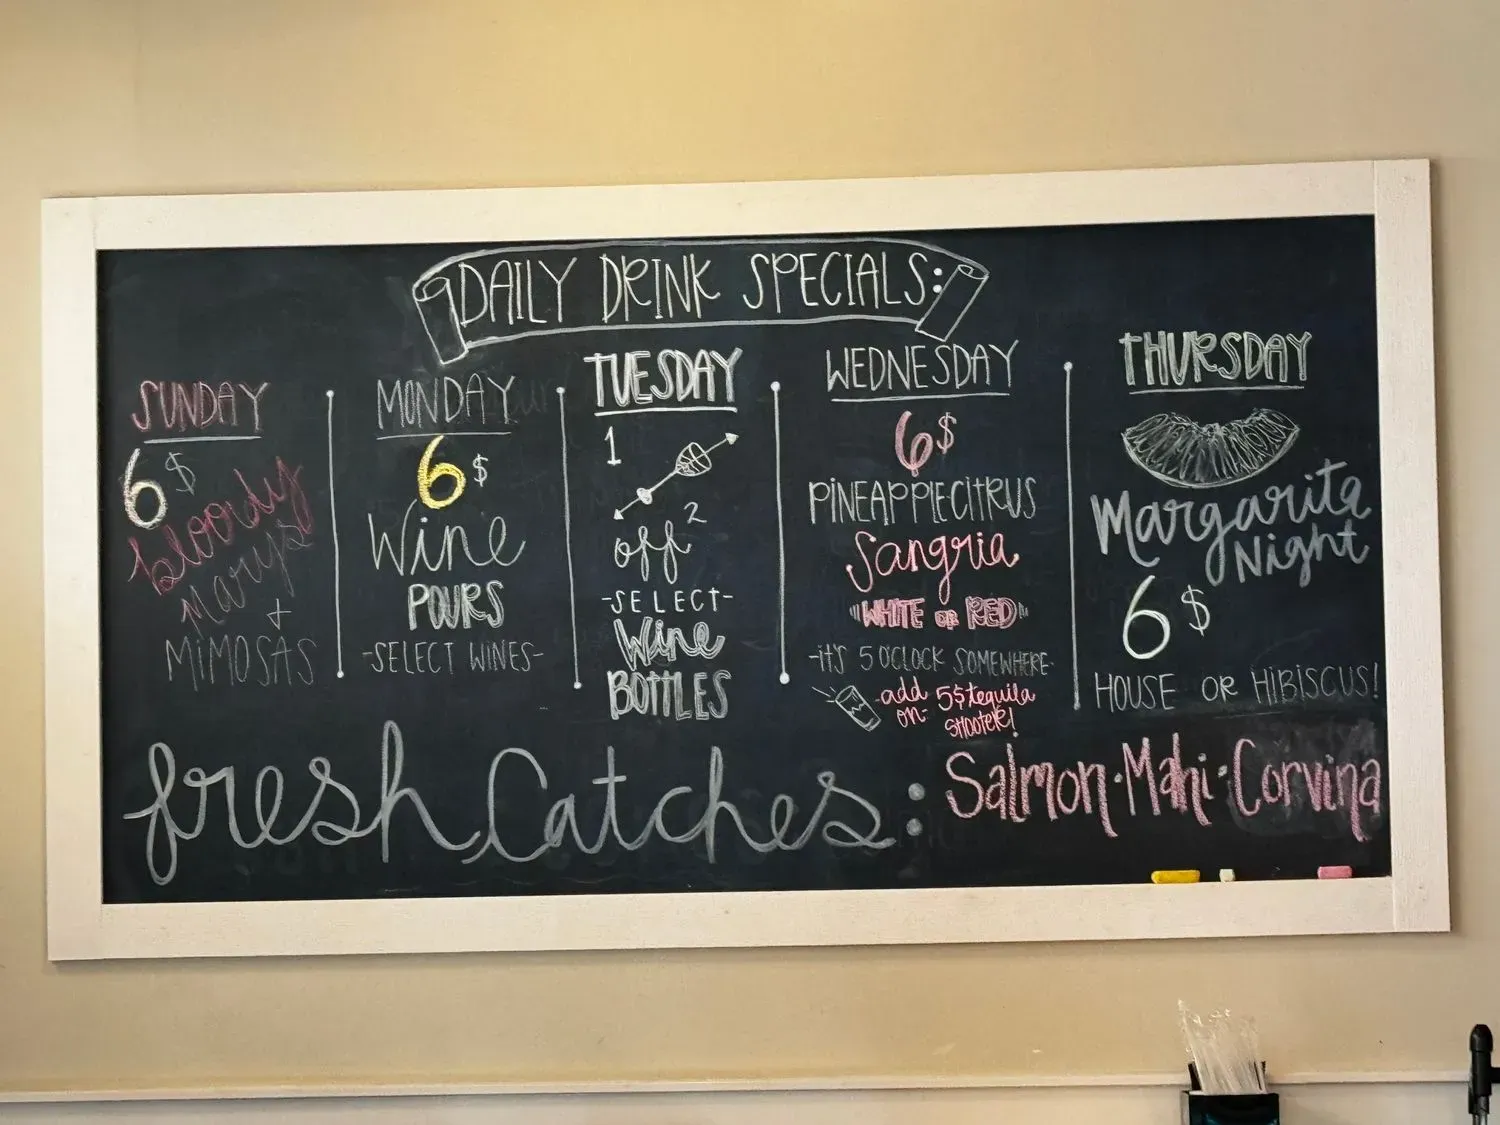 DAILY DRINK SPECIALS:
SUNDAY
6$
bloody
marys
+
MIMOSAS
MONDAY
6$
Wine
POURS
-SELECT WINES-
TUESDAY
1
2
off
-SELECT-
Wine
BOTTLES
WEDNESDAY
6$
PINEAPPLECITRUS
Sangria
"WHITE OR RED"
-IT'S 5 OCLOCK SOMEWHERE-
-add 5$ tequila
on- SHOOTER!
THURSDAY
Margarita
Night
6$
HOUSE OR HIBISCUS!
fresh Catches:
Salmon·Mahi·Corvina